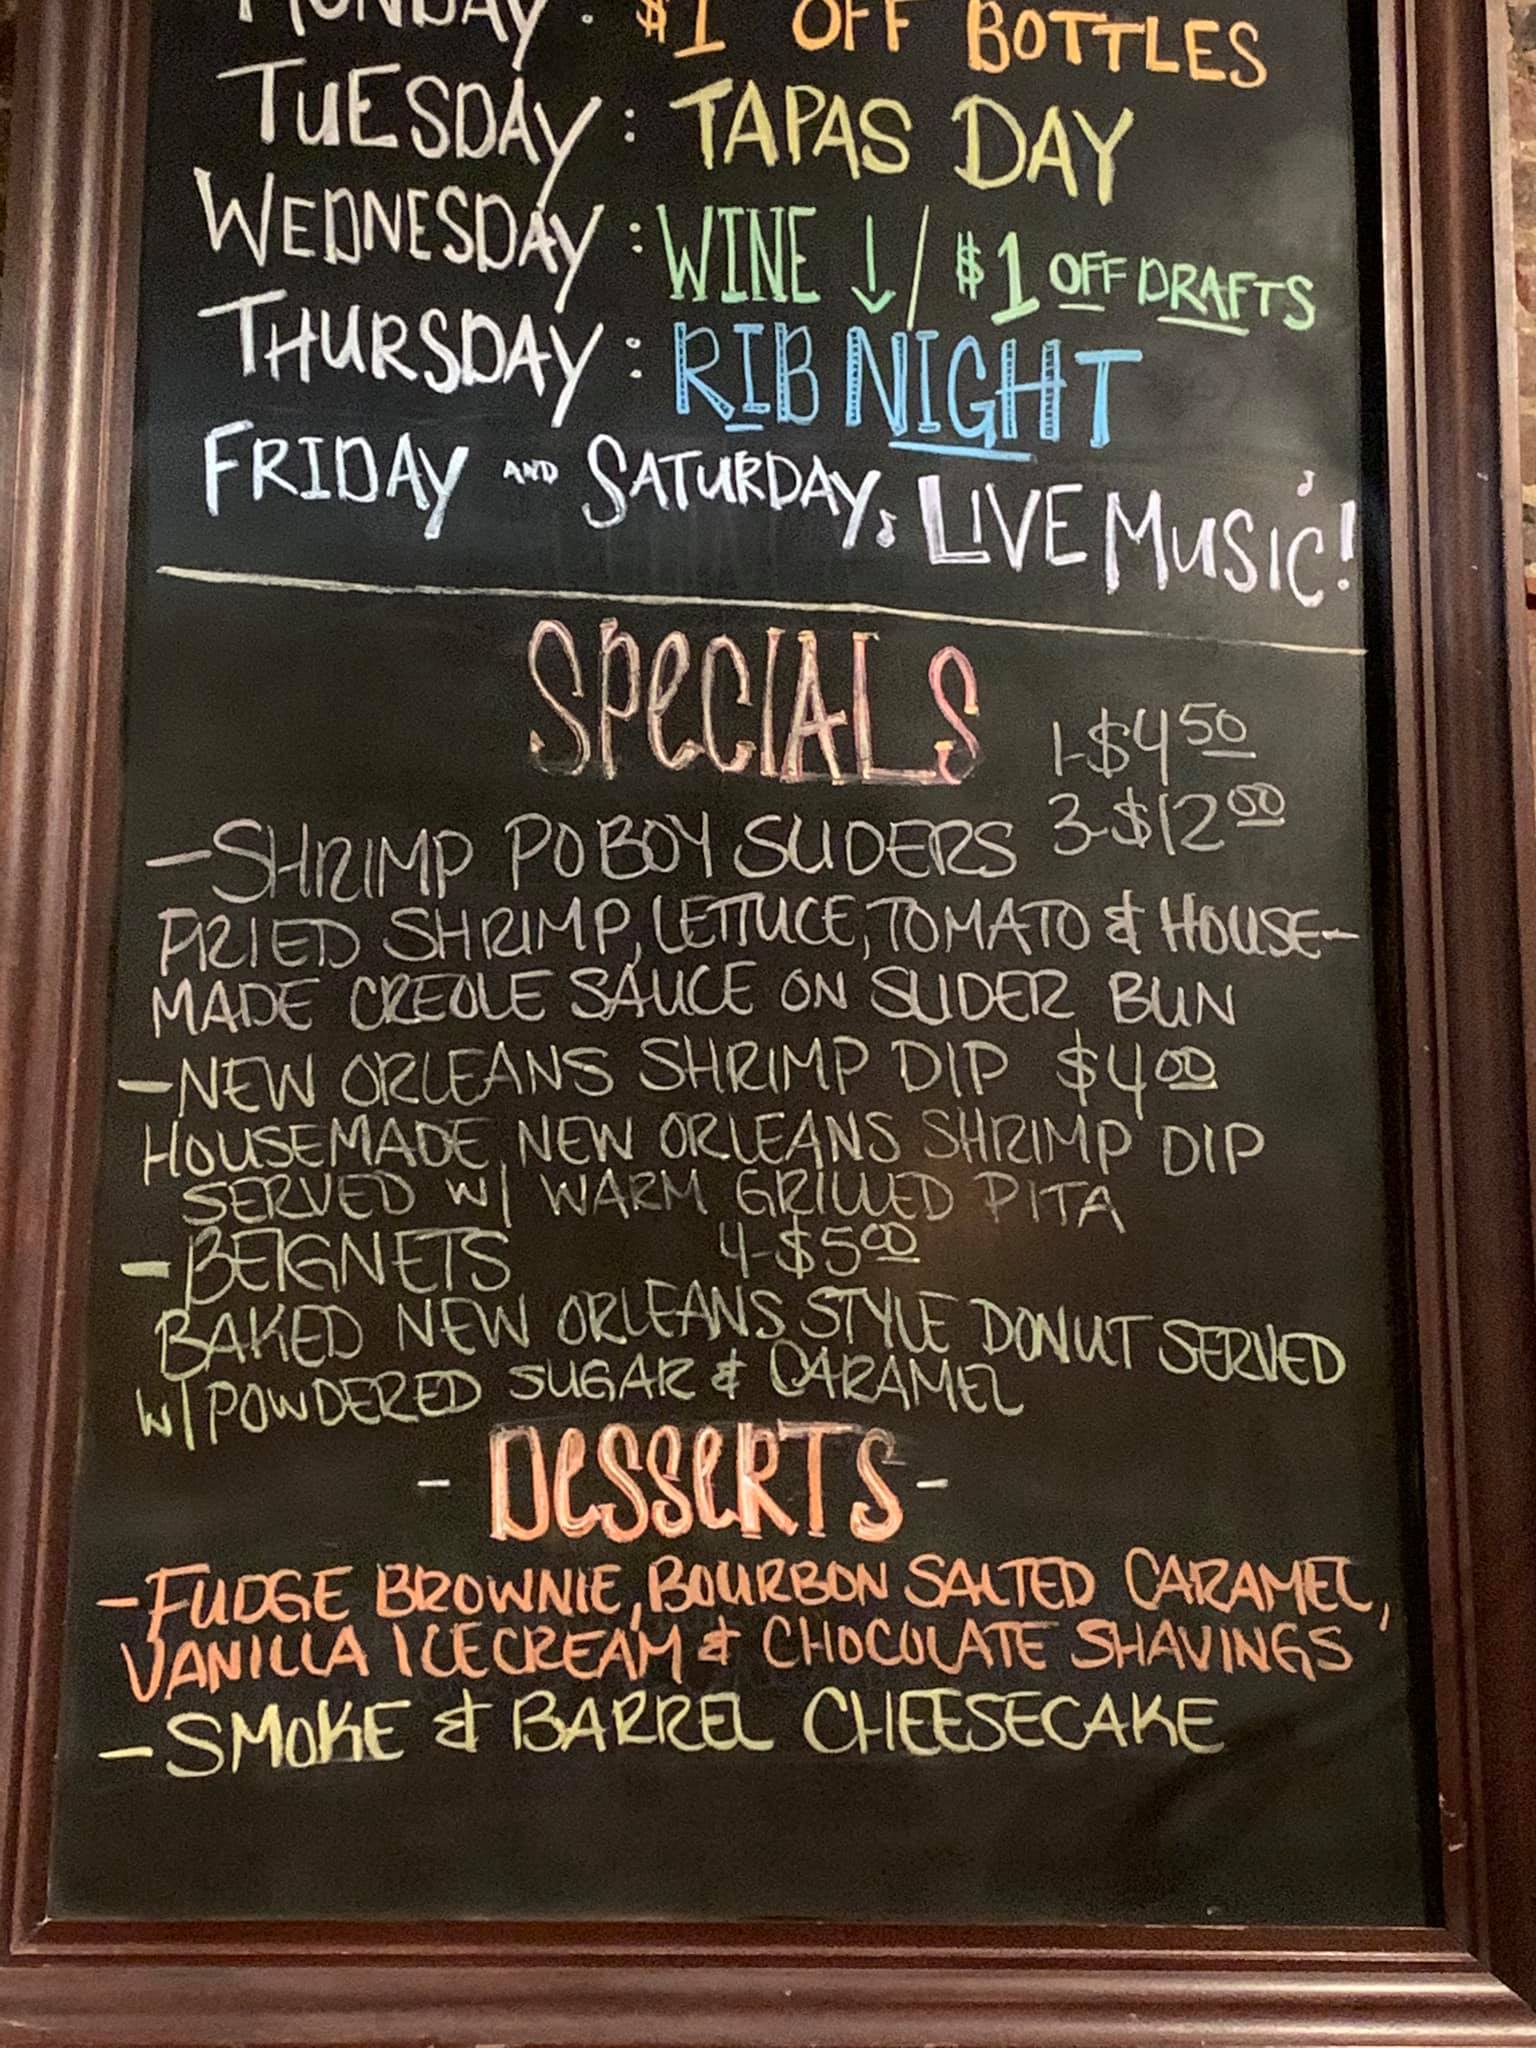 MONDAY: $1 OFF BOTTLES
TUESDAY: TAPAS DAY
WEDNESDAY: WINE ↓/$1 OFF DRAFTS
THURSDAY: RIB NIGHT
FRIDAY AND SATURDAY, LIVE MUSIC!
SPECIALS
1-$4 50
-SHRIMP PO BOY SLIDERS 3-$12 00
FRIED SHRIMP, LETTUCE, TOMATO & HOUSE-
MADE CREOLE SAUCE ON SLIDER BUN
-NEW ORLEANS SHRIMP DIP $4 00
HOUSEMADE NEW ORLEANS SHRIMP DIP
SERVED W/ WARM GRILLED PITA
-BEIGNETS 4-$5 00
BAKED NEW ORLEANS STYLE DONUT SERVED
W/ POWDERED SUGAR & CARAMEL
-DESSERTS-
-FUDGE BROWNIE, BOURBON SALTED CARAMEL,
VANILLA ICECREAM & CHOCOLATE SHAVINGS
-SMOKE & BARREL CHEESECAKE